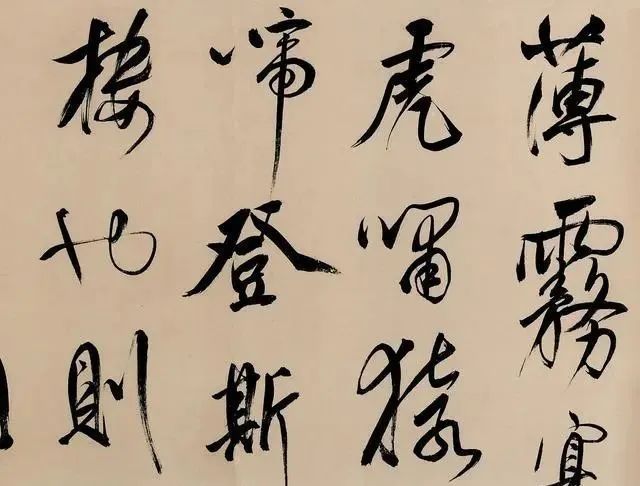 薄霧冥
虎嘯猿
啼登斯
樓也則